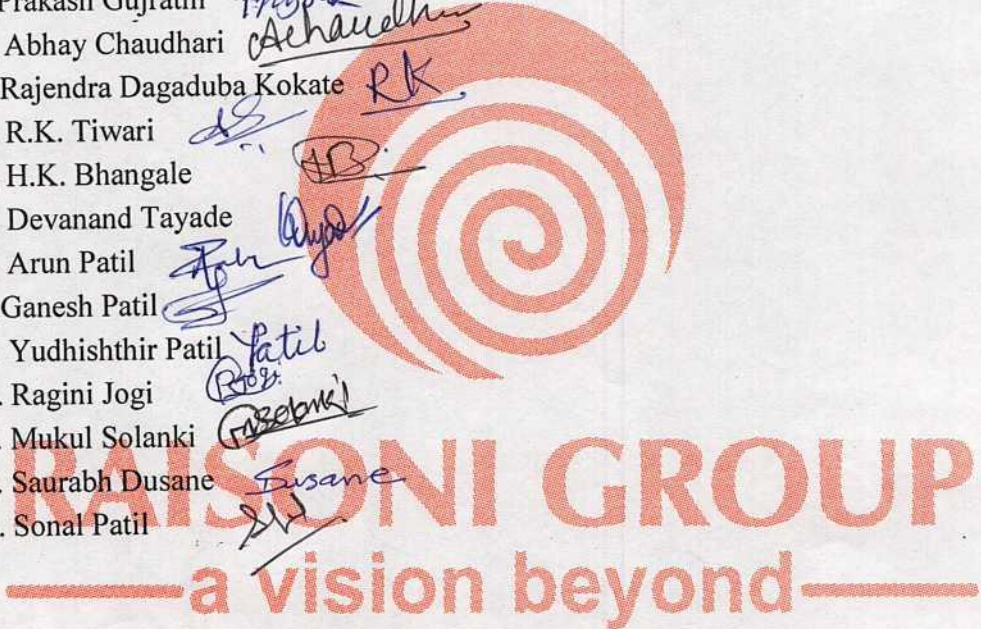 Prakash Gujrathi
Abhay Chaudhari Achaudhari
Rajendra Dagaduba Kokate RK
R.K. Tiwari
H.K. Bhangale HB.
Devanand Tayade
Arun Patil
Ganesh Patil
Yudhishthir Patil Patil
. Ragini Jogi RJogi
. Mukul Solanki MSolanki
. Saurabh Dusane Susane
. Sonal Patil
RAISONI GROUP
a vision beyond